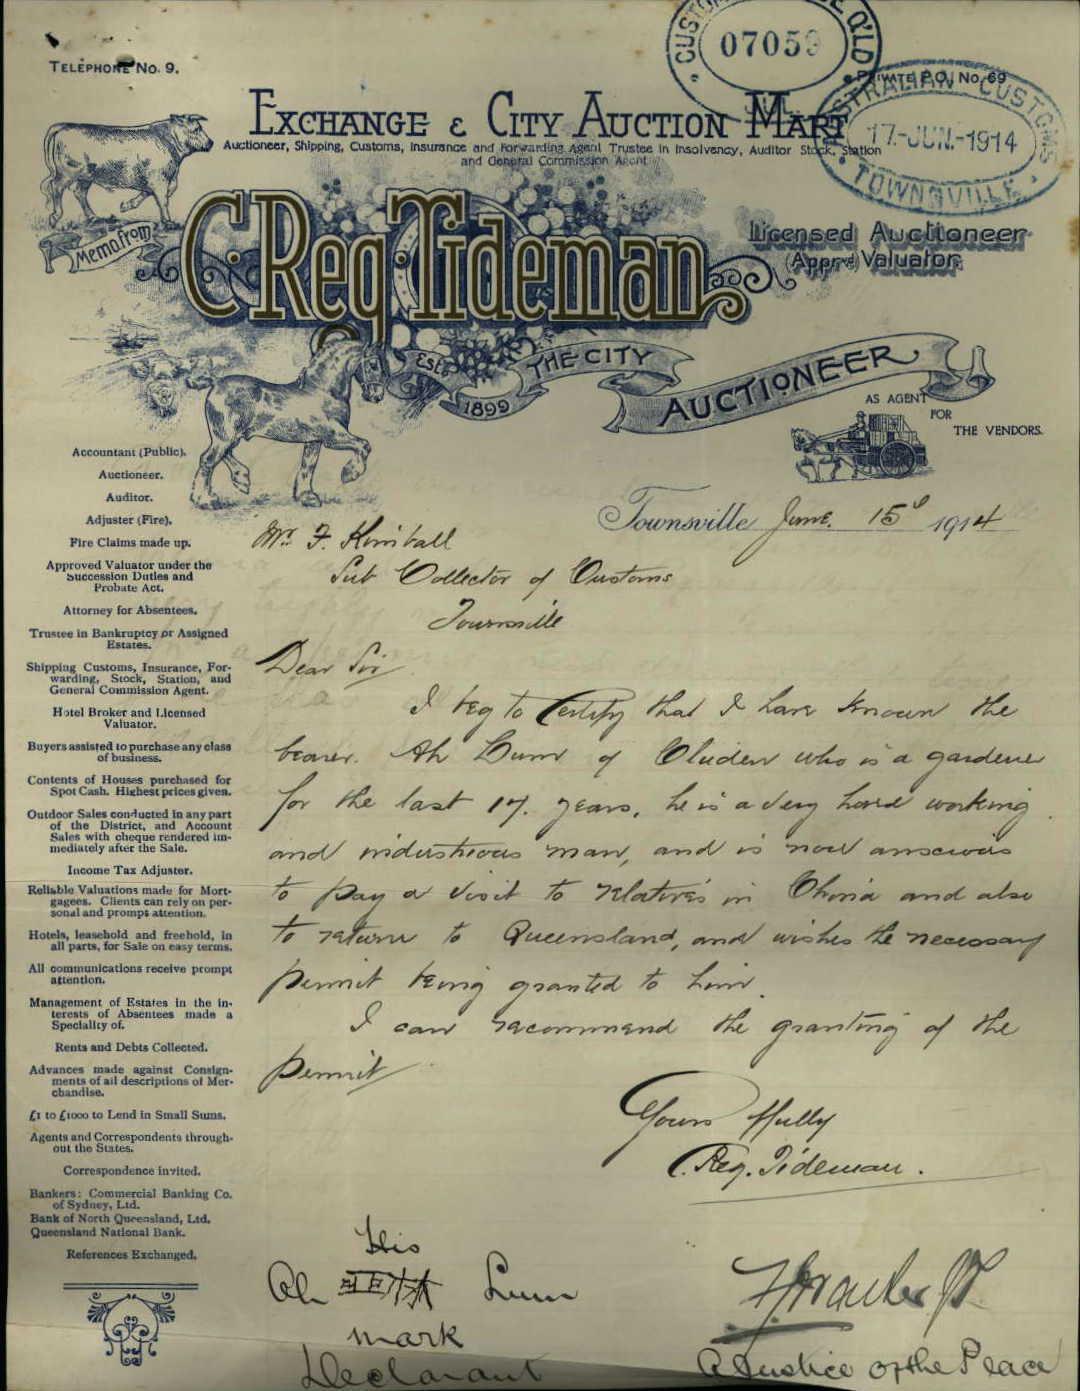 TELEPHONE NO. 9.
CUSTOMS
QLD
07059
JUL
PRIVATE P.O. NO. 69
AUSTRALIAN CUSTOMS
17-JUN.-1914
TOWNSVILLE
EXCHANGE & CITY AUCTION MART
Auctioneer, Shipping, Customs, Insurance and Forwarding Agent Trustee in Insolvency, Auditor Stock, Station
and General Commission Agent
Memo. from
C. Reg. Tideman
Licensed Auctioneer
(Appr'd) Valuator
Estd 1899
THE CITY
AUCTIONEER
AS AGENT
FOR
THE VENDORS.
Accountant (Public).
Auctioneer.
Auditor.
Adjuster (Fire).
Fire Claims made up.
Approved Valuator under the
Succession Duties and
Probate Act.
Attorney for Absentees.
Trustee in Bankruptcy or Assigned
Estates.
Shipping Customs, Insurance, For-
warding, Stock, Station, and
General Commission Agent.
Hotel Broker and Licensed
Valuator.
Buyers assisted to purchase any class
of business.
Contents of Houses purchased for
Spot Cash. Highest prices given.
Outdoor Sales conducted in any part
of the District, and Account
Sales with cheque rendered im-
mediately after the Sale.
Income Tax Adjuster.
Reliable Valuations made for Mort-
gagees. Clients can rely on per-
sonal and prompt attention.
Hotels, leasehold and freehold, in
all parts, for Sale on easy terms.
All communications receive prompt
attention.
Management of Estates in the in-
terests of Absentees made a
Speciality of.
Rents and Debts Collected.
Advances made against Consign-
ments of all descriptions of Mer-
chandise.
£1 to £1000 to Lend in Small Sums.
Agents and Correspondents through-
out the States.
Correspondence invited.
Bankers: Commercial Banking Co.
of Sydney, Ltd.
Bank of North Queensland, Ltd.
Queensland National Bank.
References Exchanged.
Townsville June. 15 1914
Mr F. Kimball
Sub Collector of Customs
Townsville
Dear Sir
I beg to Certify that I have known the
bearer. Ah Lum of Cluden who is a gardener
for the last 17. years, he is a very hard working
and industrious man, and is now anxious
to pay a visit to relatives in China and also
to return to Queensland, and wishes the necessary
permit being granted to him.
I can recommend the granting of the
permit
Yours ffully
C. Reg. Tideman.
His
Ah Lum
mark
Declarant
JP
A Justice of the Peace